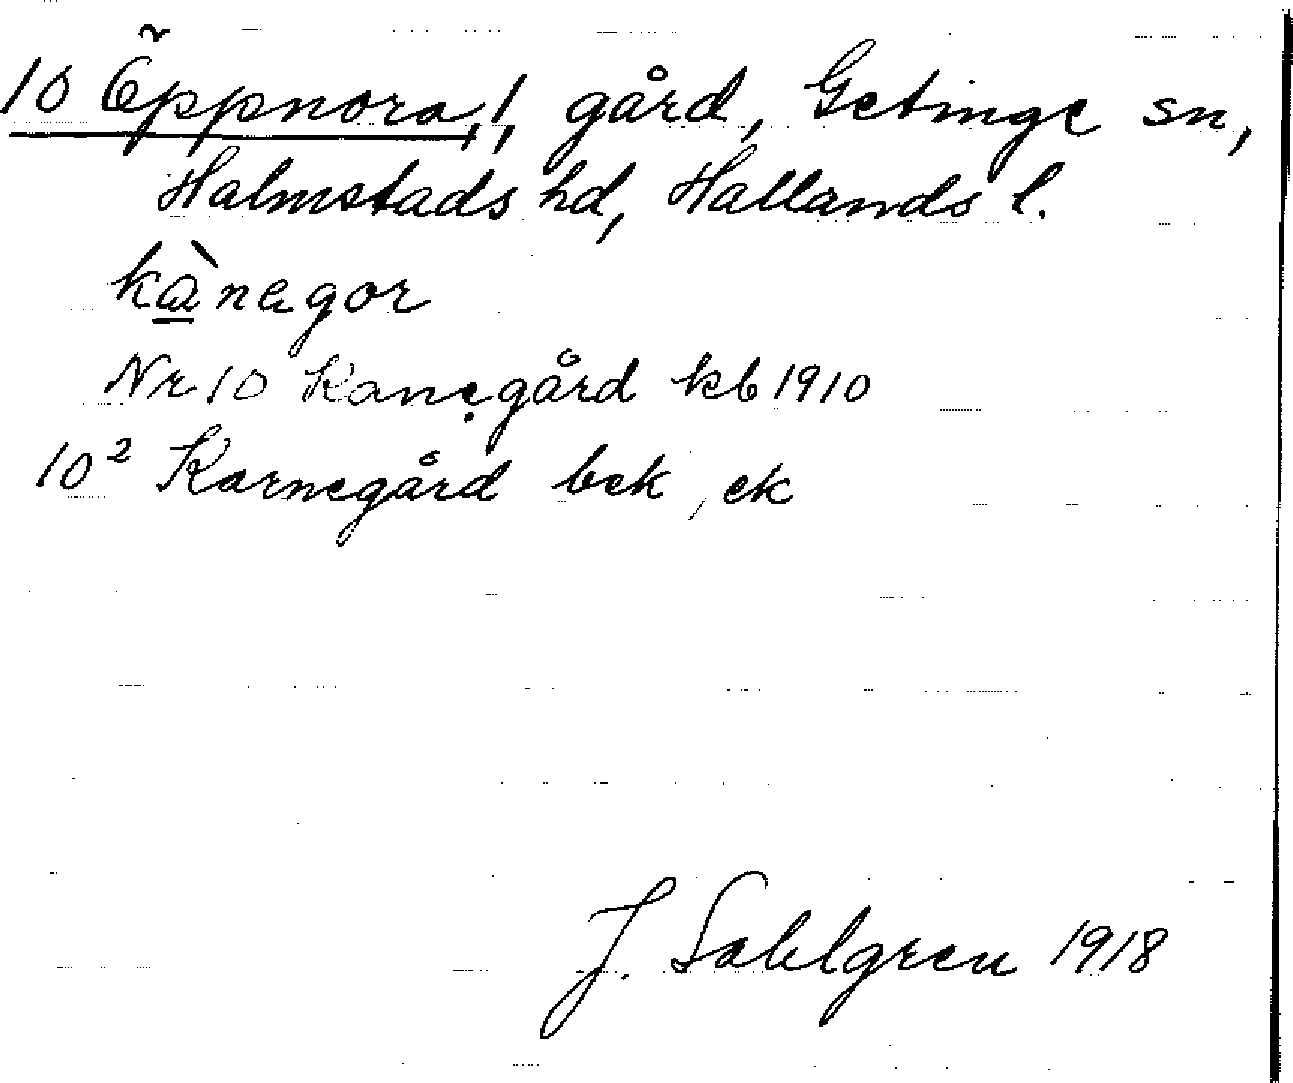 10 Öppnora, 1, gård, Getinge sn,
Halmstads hd, Hallands l.
kànagor
Nr 10 Kanegård kb 1910
10² Karnegård bek, ek
J. Sahlgren 1918